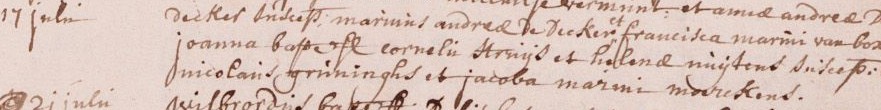 vermunt: et annæ andreæ D
17 julii decker suscep: marinus andreæ de Decker et francisca marini van box
joanna bap: fil cornelii struijs et helenæ nuijtens suscep:
nicolaus gruninghs et jacoba marini moerekens.
21 julii wilbrordus bap: